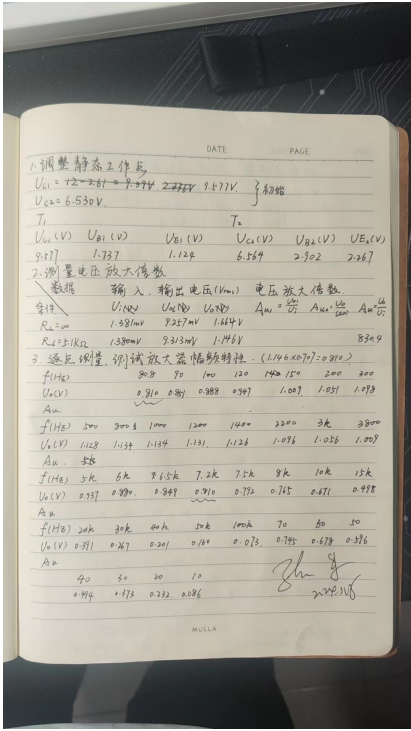 DATE PAGE
1.调整静态工作点
Uc1 = 9.577V
Uc2 = 6.530V } 初始
T1 T2
Uc1(V) UB1(V) UE1(V) Uc2(V) UB2(V) UE2(V)
9.577 1.737 1.124 6.564 2.902 2.267
2.测量电压放大倍数
数据 输入、输出电压(Vrms) 电压放大倍数
条件 Ui(V) Uo1(V) Uo(V) Au1 = Uo1/Ui Au2 = Uo/Uo1 Au = Uo/Ui
RL=∞ 1.381mV 9.257mV 1.664V
RL=5.1KΩ 1.380mV 9.313mV 1.146V 830.4
3.逐点测量,测试放大器幅频特性. (1.146×0.707=0.810)
f(Hz) 80.8 90 100 120 150 200 300
Uo(V) 0.810 0.851 0.888 0.947 1.009 1.051 1.098
Au
f(Hz) 500 800 1000 1200 1400 2200 3k 3800
Uo(V) 1.128 1.134 1.134 1.131 1.126 1.096 1.056 1.009
Au
f(Hz) 5k 6k 6.5k 7.2k 7.5k 8k 10k 15k
Uo(V) 0.937 0.880 0.849 0.810 0.792 0.765 0.671 0.498
Au
f(Hz) 20k 30k 40k 50k 100k 70 60 50
Uo(V) 0.391 0.267 0.201 0.160 0.073 0.745 0.678 0.596
Au
40 30 20 10
0.494 0.373 0.232 0.086
MULLA